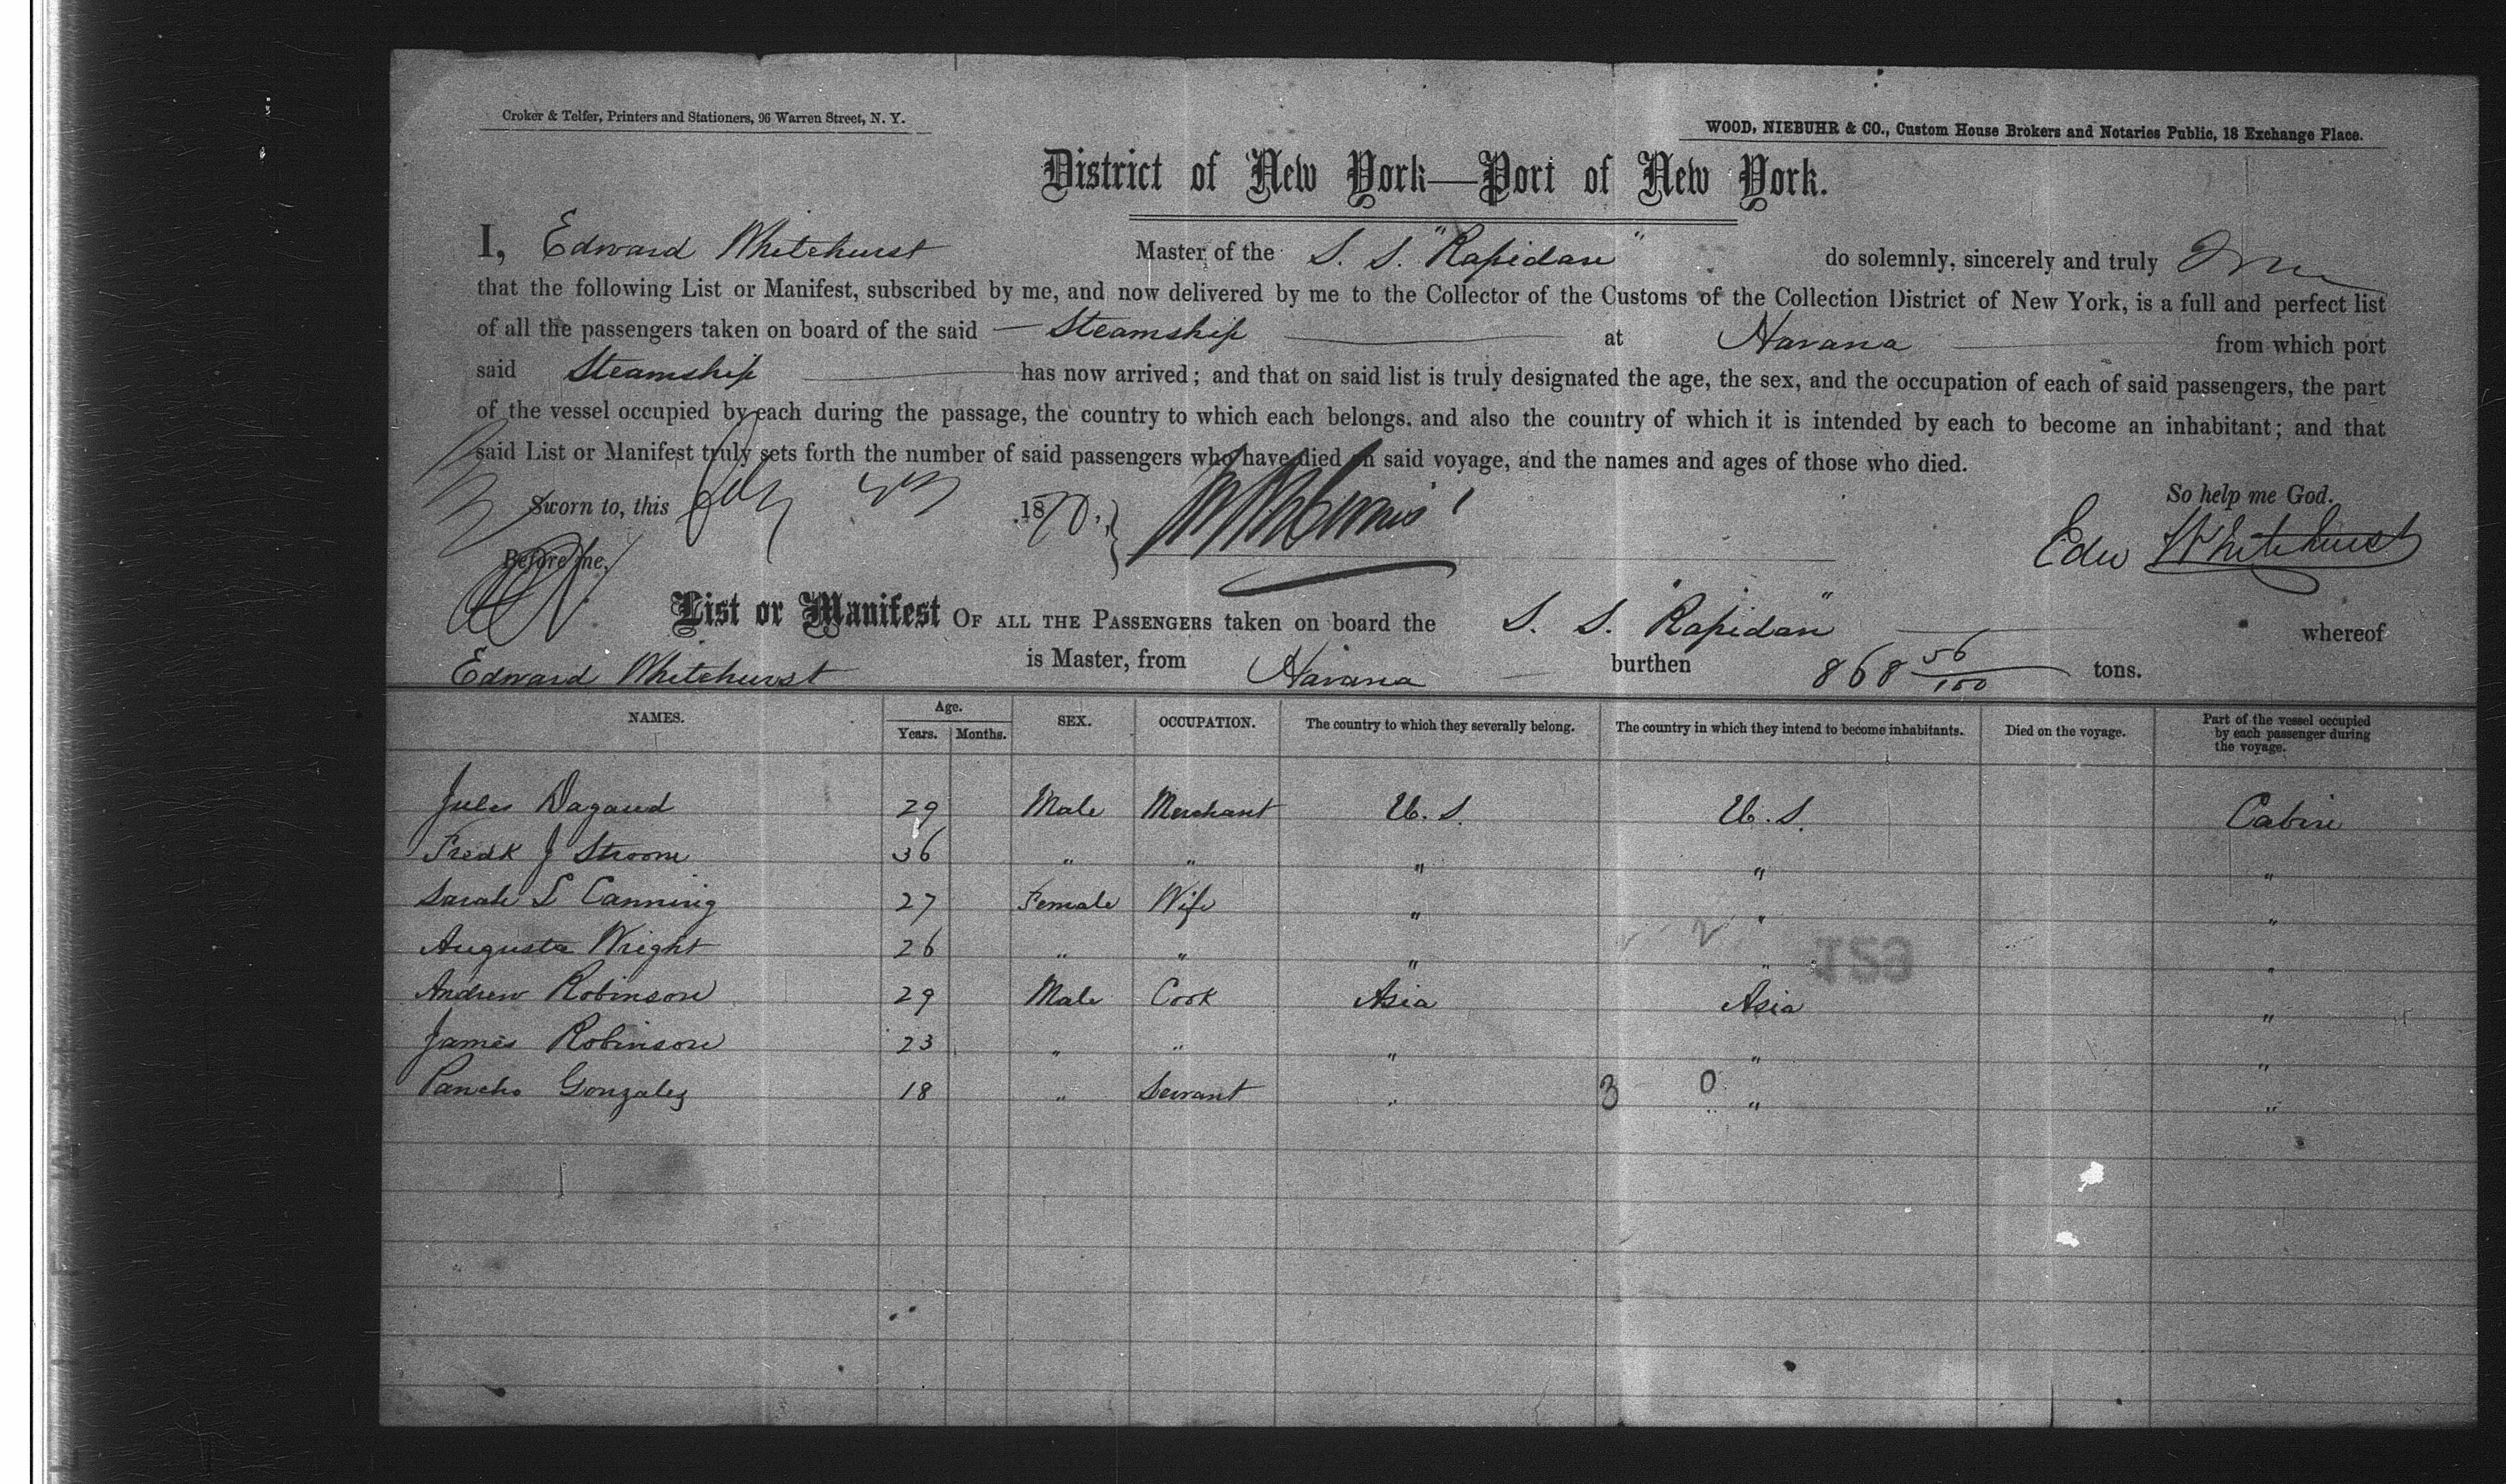 Croker & Telfer, Printers and Stationers, 96 Warren Street, N. Y.
WOOD, NIEBUHR & CO., Custom House Brokers and Notaries Public, 18 Exchange Place.
District of New York—Port of New York.
I, Edward Whitehurst Master of the S. S. "Rapidan" do solemnly, sincerely and truly
that the following List or Manifest, subscribed by me, and now delivered by me to the Collector of the Customs of the Collection District of New York, is a full and perfect list
of all the passengers taken on board of the said — Steamship — at Havana — from which port
said Steamship — has now arrived; and that on said list is truly designated the age, the sex, and the occupation of each of said passengers, the part
of the vessel occupied by each during the passage, the country to which each belongs, and also the country of which it is intended by each to become an inhabitant; and that
said List or Manifest truly sets forth the number of said passengers who have died on said voyage, and the names and ages of those who died.
So help me God.
Sworn to, this 1870.
Edw Whitehurst
Before me,
List or Manifest OF ALL THE PASSENGERS taken on board the S. S. "Rapidan" — whereof
Edward Whitehurst is Master, from Havana — burthen 868 56/100 tons.
NAMES. Age. Years. Months. SEX. OCCUPATION. The country to which they severally belong. The country in which they intend to become inhabitants. Died on the voyage. Part of the vessel occupied by each passenger during the voyage.
Jules Dagaud 29 Male Merchant U. S. U. S. Cabin
Fredk J Stroom 36 " " " " "
Sarah L Canning 27 Female Wife " " "
Augusta Wright 26 " " " " "
Andrew Robinson 29 Male Cook Asia Asia "
James Robinson 23 " " " " "
Pancho Gonzalez 18 " Servant " 3 0 " "